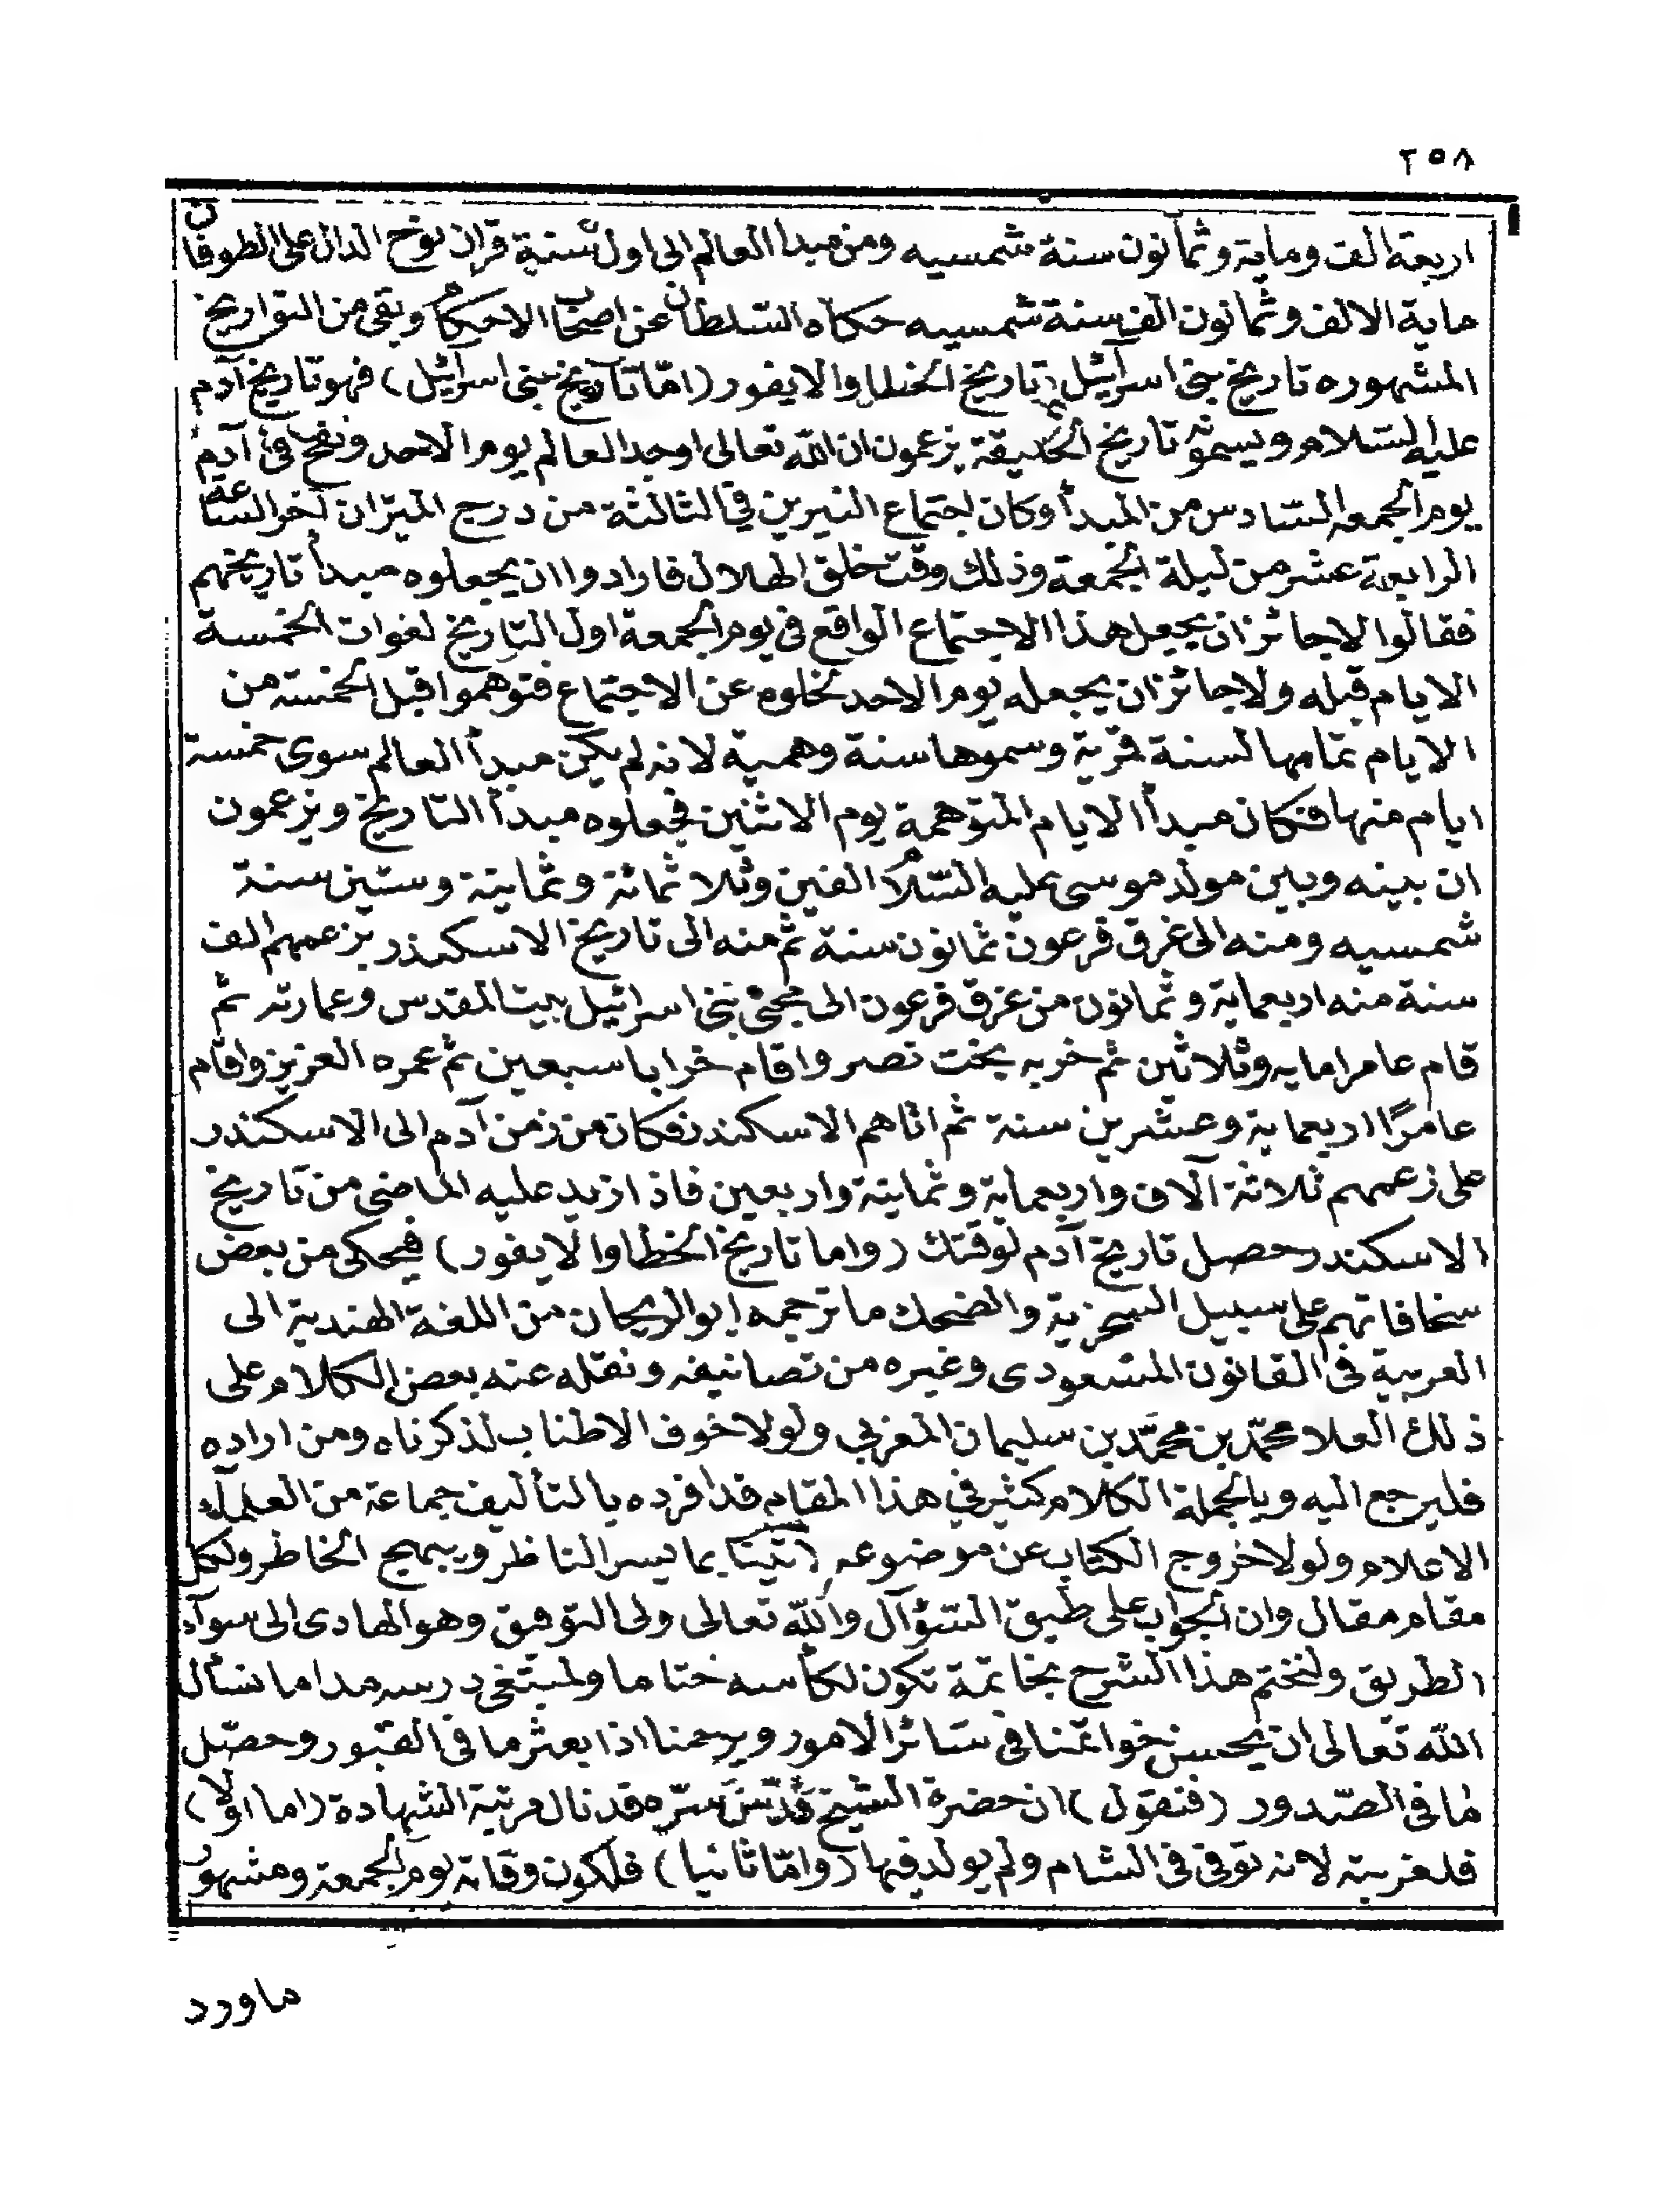 ٢٥٨
اربعة الف وماية وثمانون سنة شمسيه ومن مبدا العالم الى اول سنة قران نوح الدال على الطوفان
ماية الالف وثمانون الف سنة شمسيه حكاه السلطان عن اصحاب الاحكام وبقى من التواريخ
المشهوره تاريخ بنى اسرآئيل وتاريخ الخطا والايفور (امّا تاريخ بنى اسرآئيل) فهو تاريخ آدم
عليه السلام ويسمونه تاريخ الخليقة يزعمون ان الله تعالى اوجد العالم يوم الاحد ونفخ فى آدم
يوم الجمعه السادس من المبدأ وكان اجتماع النيرين في الثالثة من درج الميزان آخر الساعة
الرابعة عشر من ليلة الجمعة وذلك وقت خلق الهلال فارادوا ان يجعلوه مبدأ تاريخهم
فقالوا لاجائز ان يجعل هذا الاجتماع الواقع فى يوم الجمعة اول التاريخ لفوات الخمسة
الايام قبله ولاجائز ان يجعله يوم الاحد لخلوه عن الاجتماع فتوهموا قبل الخمسة من
الايام تمامها لسنة قمرية وسموها سنة وهمية لانه لم يكن مبدأ العالم سوى خمسة
ايام منها فكان مبدأ الايام المتوهمة يوم الاثنين فجعلوه مبدأ التاريخ ويزعمون
ان بينه وبين مولد موسى عليه السلام الفين وثلاثمائة وثمانية وستين سنة
شمسيه ومنه الى غرق فرعون ثمانون سنة ثم منه الى تاريخ الاسكندر بزعمهم الف
سنة منه اربعماية وثمانون من غرق فرعون الى مجئ بنى اسرائيل بيت المقدس وعمارته ثم
قام عامرا مايه وثلاثين ثم خربه بخت نصر واقام خرابا سبعين ثم عمره العزيز واقام
عامرًا اربعماية وعشرين سنة ثم اتاهم الاسكندر فكان من زمن آدم الى الاسكندر
على زعمهم ثلاثة آلاف واربعماية وثمانية واربعين فاذا زيد عليه الماضى من تاريخ
الاسكندر حصل تاريخ آدم لوقتك (واما تاريخ الخطا والايفور) فيحكى من بعض
سخافاتهم على سبيل السخرية والضحك ما ترجمه ابو الريحان من اللغة الهندية الى
العربية فى القانون المسعودى وغيره من تصانيفه ونقله عنه بعض الكلام على
ذلك العلا محمّد بن محمّد بن سليمان المغربي ولولا خوف الاطناب لذكرناه ومن اراده
فليرجع اليه وبالجملة الكلام كثير في هذا المقام قد افرده بالتأليف جماعة من العلمآء
الاعلام ولولا خروج الكتاب عن موضوعه اتينا بما يسر الناظر ويبهج الخاطر ولكل
مقام مقال وان الجواب على طبق السؤآل والله تعالى ولى التوفيق وهو الهادى الى سوآء
الطريق ولنختم هذا الشرح بخاتمة تكون لكأسه ختاما ولمبتغى درسه مداما نسأل
الله تعالى ان يحسن خواتمنا فى سائر الامور ويرحمنا اذا بعثر ما فى القبور وحصّل
ما فى الصّدور (فنقول) ان حضرة الشيخ قدّس سرّه قد نال مرتبة الشهادة (اما اولا)
فلغربته لانه توفى فى الشام ولم يولد فيها (وامّا ثانيا) فلكون وفاته يوم الجمعة ومشهور
ماورد